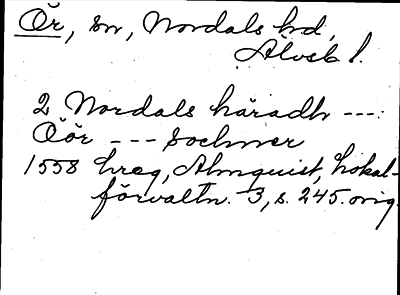 Ör, sn, Nordals hd,
Älvsb l.
2 Nordals häradh ---:
Öör --- Sochner
1558 hreg, Almquist, Lokal-
förvaltn. 3, s. 245. orig.